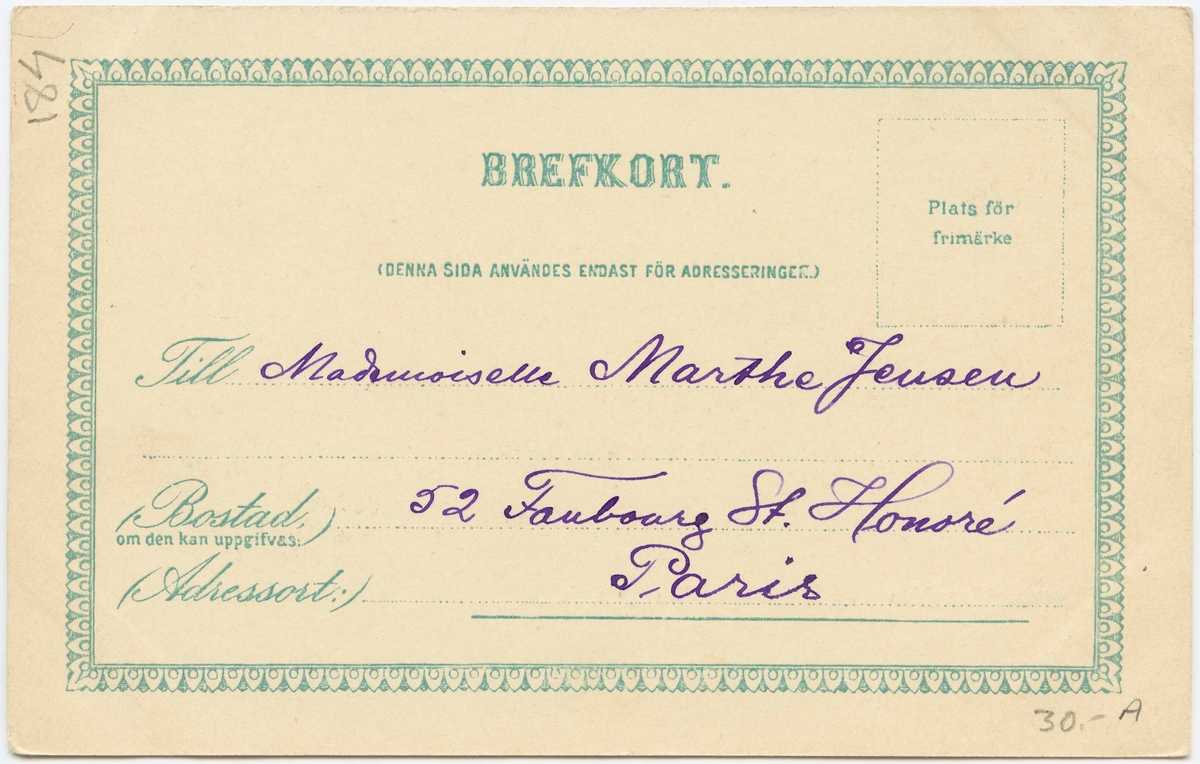 184
BREFKORT.
Plats för
frimärke
(DENNA SIDA ANVÄNDES ENDAST FÖR ADRESSERINGEN.)
Till Mademoiselle Marthe Jensen
(Bostad,) 52 Faubourg St. Honoré
om den kan uppgifvas:
(Adressort:) Paris
30.- A